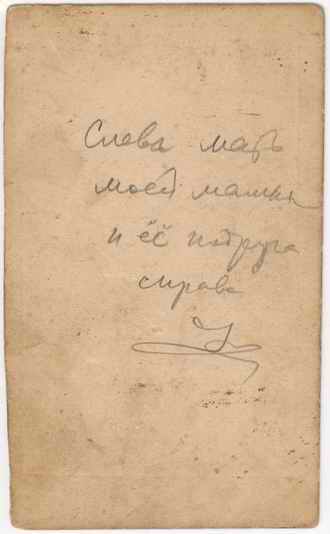 Слева мать
моей мамы
и её подруга
справа